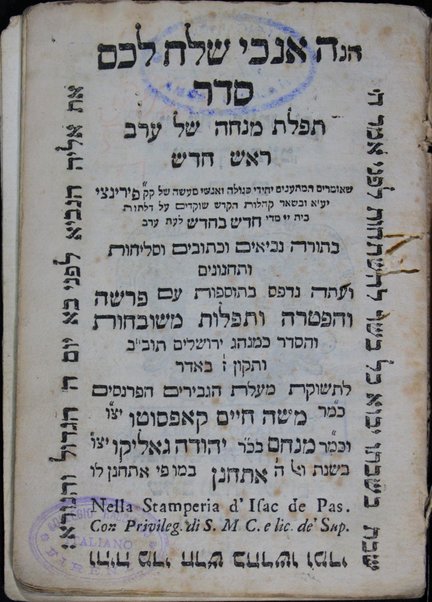 הנה אנכי שלח לכם
סדר
תפלת מנחה של ערב
ראש חדש
שאומרים המתענים יחידי סגולה ואנשי מעשה של קק״ פירינצי
יע״א ובשאר קהלות הקדש שוקדים על דלתות
בית יי מדי חדש בחדש לעת ערב
בתורה נביאים וכתובים וסליחות
ותחנונים
ועתה נדפס בתוספות עם פרשה
והפטרה ותפלות משובחות
והסדר כמנהג ירושלים תוב״ב
ותקון ז באדר
לתשוקת מעלת הגבירים הפרנסים
כמר משה חיים קאפסוטו יצו
וכמר מנחם בכר יהודה גאליקו יצו
בשנת ואל ה אתחנן במו פי אתחנן לו
Nella Stamperia d' Isac de Pas.
Con Privileg. di S. M C. e lic. de' Sup.
והיה מדי חדש בחדשו ומדי
שבת בשבתו יבוא כל בשר להשתחות לפני אמר ה
את אליה הנביא לפני בא יום ה הגדול והנורא:
ITALIANO
FIRENZE